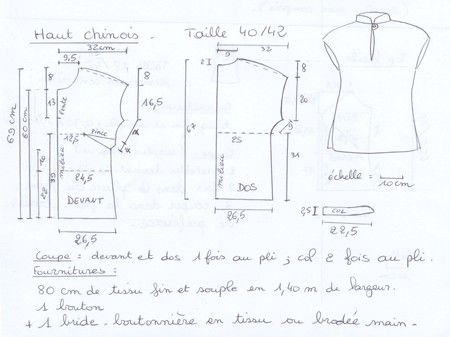 Haut chinois.
Taille 40/42
32cm
9,5
8
13
69 cm
60 cm
fente
16,5
pince
12,5
milieu
24,5
39
DEVANT
26,5
9
32
2
8
20
67
9
25
31
milieu
DOS
26,5
échelle =
10cm
3,5
COL
22,5
Coupe = devant et dos 1 fois au pli ; col 2 fois au pli.
Fournitures :
80 cm de tissu fin et souple en 1,40 m de largeur.
1 bouton
+ 1 bride-boutonnière en tissu ou brodée main-